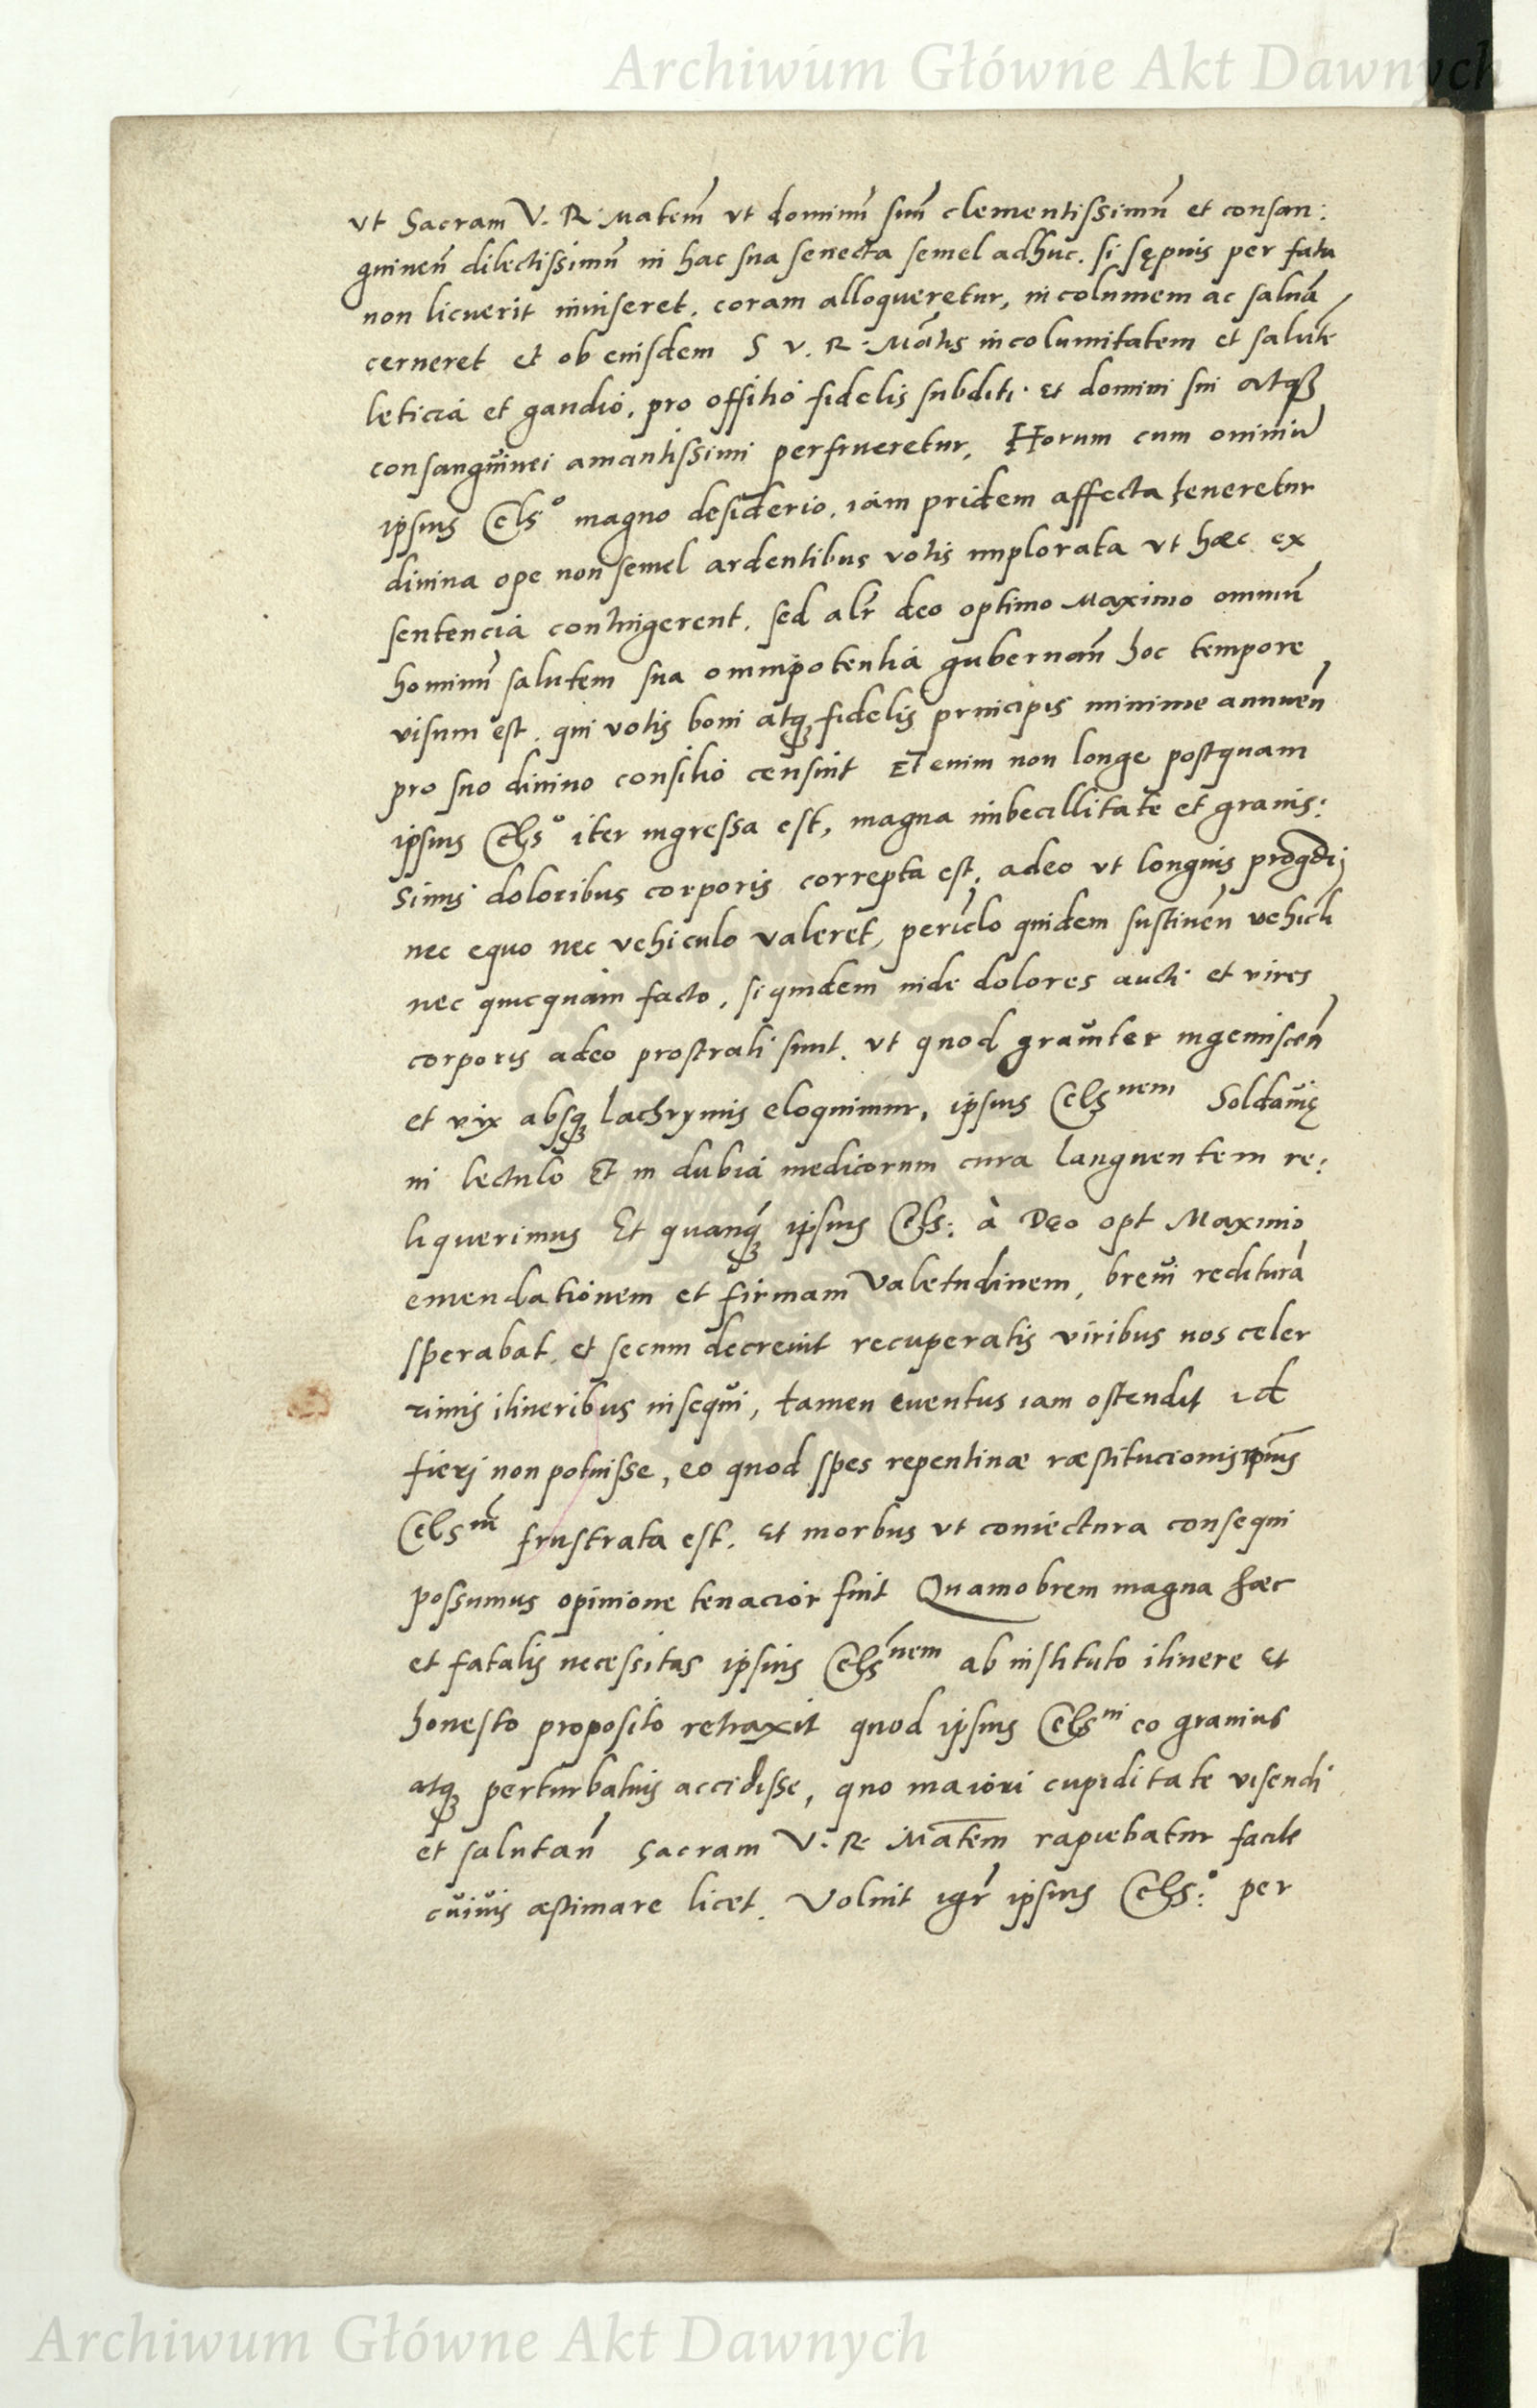 Archiwum Główne Akt Dawnych
vt Sacram V. R. Matem̃ vt dominũ suũ clementissimũ et consan:
guineũ dilectissimũ in hac sua senecta semel adhuc. si sępius per fata
non licuerit inviseret. coram alloqueretur, incolumem ac saluã
cerneret et ob eiusdem S V. R. Mãtis incolumitatem et salutẽ
leticia et gaudio, pro offitio fidelis subditi. et domini sui atqꝫ
consanguinei amantissimi perfrueretur, Horum cum omniũ
ipsius Cels° magno desiderio, iam pridem affecta teneretur
divina ope non semel ardentibus votis implorata vt hæc ex
sentencia contingerent. sed alr̃ deo optimo Maximo omniũ
hominũ salutem sua omnipotentia gubernañ hoc tempore
visum est. qui votis boni atqꝫ fidelis principis minime annueñ
pro suo divino consilio censuit Etenim non longe postquam
ipsius Cels° iter ingressa est, magna imbecillitate et gravis:
simis doloribus corporis correpta est, adeo vt longius progredi
nec equo nec vehiculo valeret, pericl̃o quidem sustineñ vehicl̃i
nec quicquam facto, siquidem inde dolores aucti et vires
corporis adeo prostrati sunt. vt quod graviter ingemisceñ
et vix absqꝫ lachrymis eloquimur, ipsius Cels^nem Soldavię
in lectulo Et in dubia medicorum cura languentem re:
liquerimus Et quanqꝫ ipsius Cels: à Deo opt Maximo
emendationem et firmam Valetudinem, brevi rediturã
sperabat. et secum decrevit recuperatis viribus nos celer
rimis itineribus insequi, tamen eventus iam ostendit id
fieri non potuisse, eo quod spes repentinæ ræstitucionis ip̃ius
Cels^m̃ frustrata est. Et morbus vt coniectura consequi
possumus opinione tenacior fuit Quamobrem magna hæc
et fatalis necessitas ipsius Cels^nem ab instituto itinere Et
honesto proposito retraxit quod ipsius Cels^ni eo gravius
atqꝫ perturbatius accidisse, quo maiori cupiditate visendi
et salutañ Sacram V. R. Matem̃ rapiebatur facile
cuivis æstimare licet. Voluit igr̃ ipsius Cels:° per
Archiwum Główne Akt Dawnych